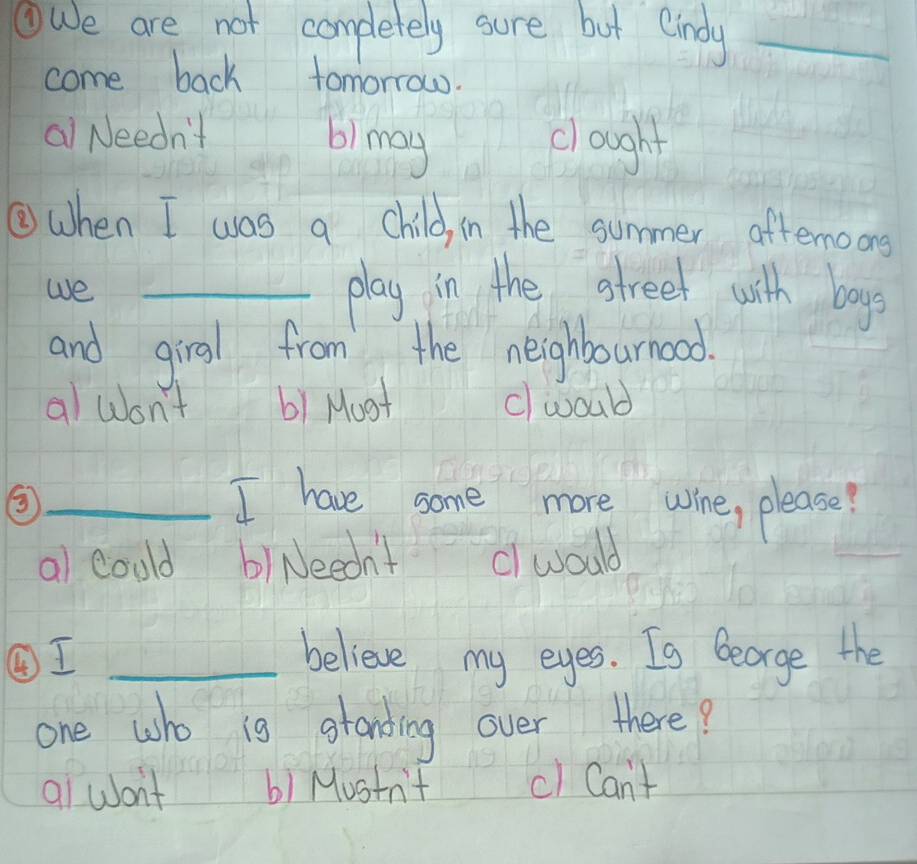 ① We are not completely sure but Cindy ______
come back tomorrow.
a) Needn't b) may c) ought
② When I was a child, in the summer afternoons
we ______ play in the street with boys
and girsl from the neighbournood.
a) Won't b) Must c) would
③ ______ I have some more wine, please?
a) Could b) Needn't c) would
④ I ______ believe my eyes. Is George the
one who is standing over there?
a) Won't b) Mustn't c) Can't